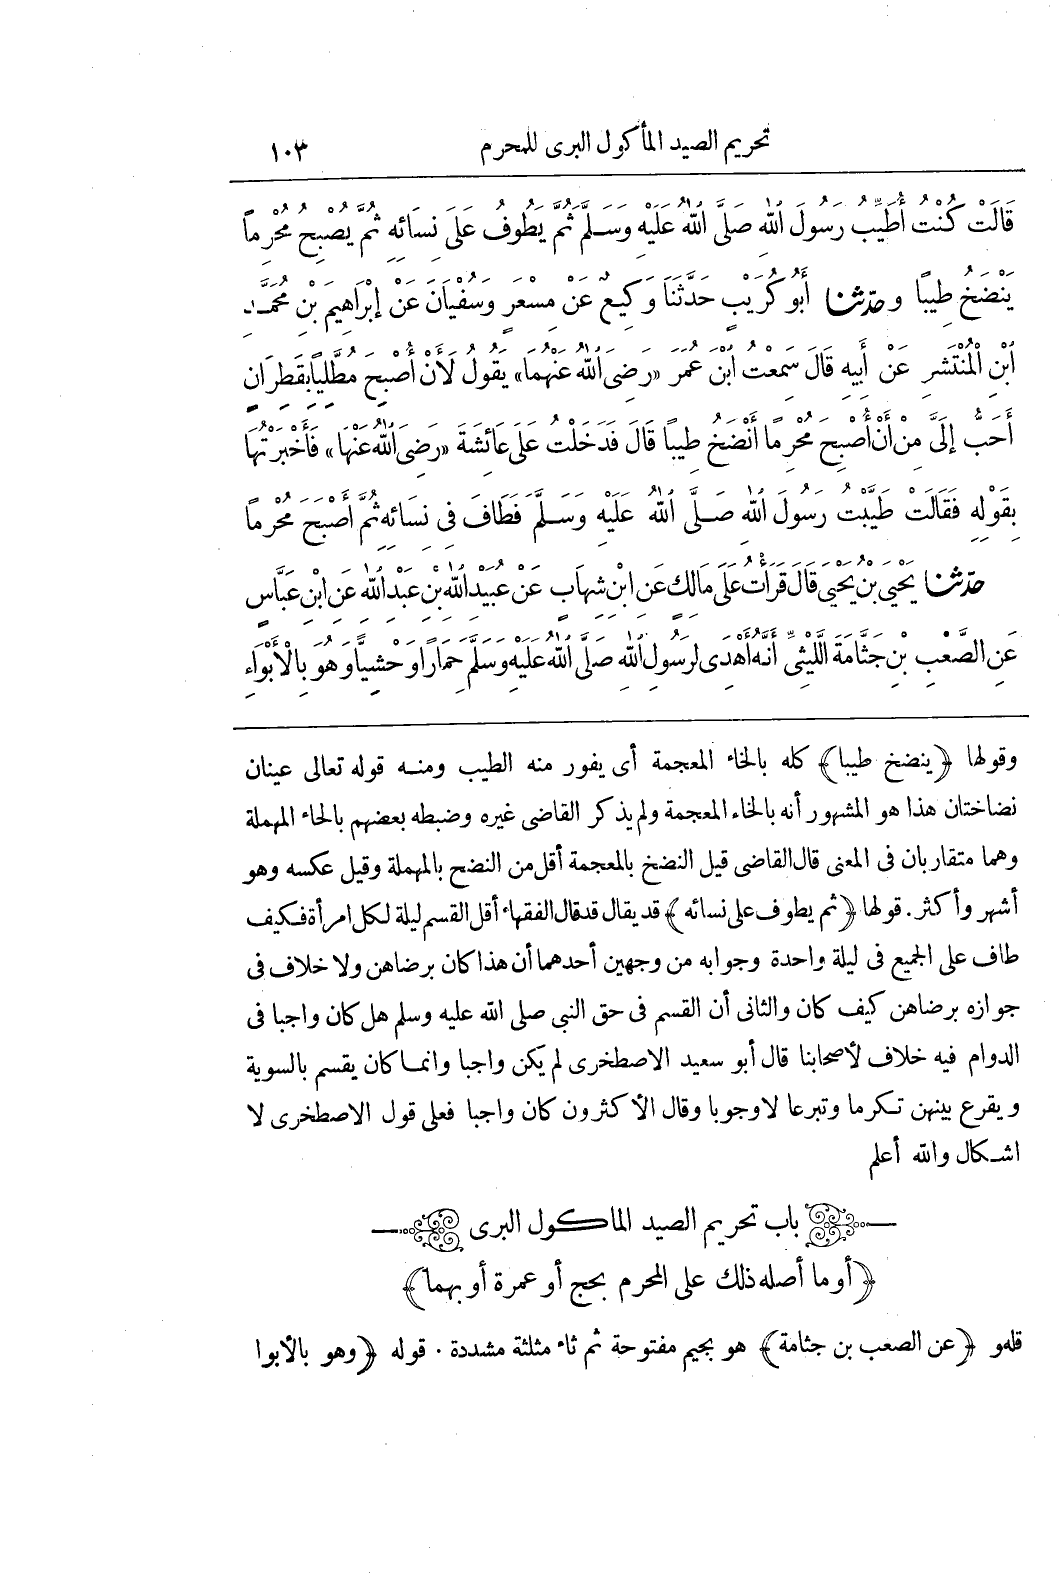 تحريم الصيد المأكول البرى للمحرم ١٠٣
قَالَتْ كُنْتُ أُطَيِّبُ رَسُولَ اللهِ صَلَّى اللهُ عَلَيْهِ وَسَلَّمَ ثُمَّ يَطُوفُ عَلَى نِسَائِهِ ثُمَّ يُصْبِحُ مُحْرِمًا
يَنْضَخُ طِيبًا و حدّثنا أَبُو كُرَيْبٍ حَدَّثَنَا وَكِيعٌ عَنْ مِسْعَرٍ وَسُفْيَانَ عَنْ إِبْرَاهِيمَ بْنِ مُحَمَّدِ
ابْنِ الْمُنْتَشِرِ عَنْ أَبِيهِ قَالَ سَمِعْتُ ابْنَ عُمَرَ «رَضِىَ اللهُ عَنْهُمَا» يَقُولُ لَأَنْ أُصْبِحَ مُطَّلِيًا بِقَطِرَانٍ
أَحَبُّ إِلَىَّ مِنْ أَنْ أُصْبِحَ مُحْرِمًا أَنْضَخُ طِيبًا قَالَ فَدَخَلْتُ عَلَى عَائِشَةَ «رَضِىَ اللهُ عَنْهَا» فَأَخْبَرْتُهَا
بِقَوْلِهِ فَقَالَتْ طَيَّبْتُ رَسُولَ اللهِ صَلَّى اللهُ عَلَيْهِ وَسَلَّمَ فَطَافَ فِى نِسَائِهِ ثُمَّ أَصْبَحَ مُحْرِمًا
حدّثنا يَحْيَى بْنُ يَحْيَى قَالَ قَرَأْتُ عَلَى مَالِكٍ عَنِ ابْنِ شِهَابٍ عَنْ عُبَيْدِ اللهِ بْنِ عَبْدِ اللهِ عَنِ ابْنِ عَبَّاسٍ
عَنِ الصَّعْبِ بْنِ جَثَّامَةَ اللَّيْثِىِّ أَنَّهُ أَهْدَى لِرَسُولِ اللهِ صَلَّى اللهُ عَلَيْهِ وَسَلَّمَ حِمَارًا وَحْشِيًّا وَهُوَ بِالْأَبْوَاءِ
وقولها ﴿ينضخ طيبا﴾ كله بالخاء المعجمة أى يفور منه الطيب ومنه قوله تعالى عينان
نضاختان هذا هو المشهور أنه بالخاء المعجمة ولم يذكر القاضى غيره وضبطه بعضهم بالحاء المهملة
وهما متقاربان فى المعنى قال القاضى قيل النضخ بالمعجمة أقل من النضح بالمهملة وقيل عكسه وهو
أشهر وأكثر. قولها ﴿ثم يطوف على نسائه﴾ قد يقال قد قال الفقهاء أقل القسم ليلة لكل امرأة فكيف
طاف على الجميع فى ليلة واحدة وجوابه من وجهين أحدهما أن هذا كان برضاهن ولا خلاف فى
جوازه برضاهن كيف كان والثانى أن القسم فى حق النبى صلى الله عليه وسلم هل كان واجبا فى
الدوام فيه خلاف لأصحابنا قال أبو سعيد الاصطخرى لم يكن واجبا وانما كان يقسم بالسوية
ويقرع بينهن تكرما وتبرعا لا وجوبا وقال الأكثرون كان واجبا فعلى قول الاصطخرى لا
اشكال والله أعلم
باب تحريم الصيد المأكول البرى
﴿أو ما أصله ذلك على المحرم بحج أو عمرة أو بهما﴾
قلهو ﴿عن الصعب بن جثامة﴾ هو بجيم مفتوحة ثم ثاء مثلثة مشددة . قوله ﴿وهو بالأبوا